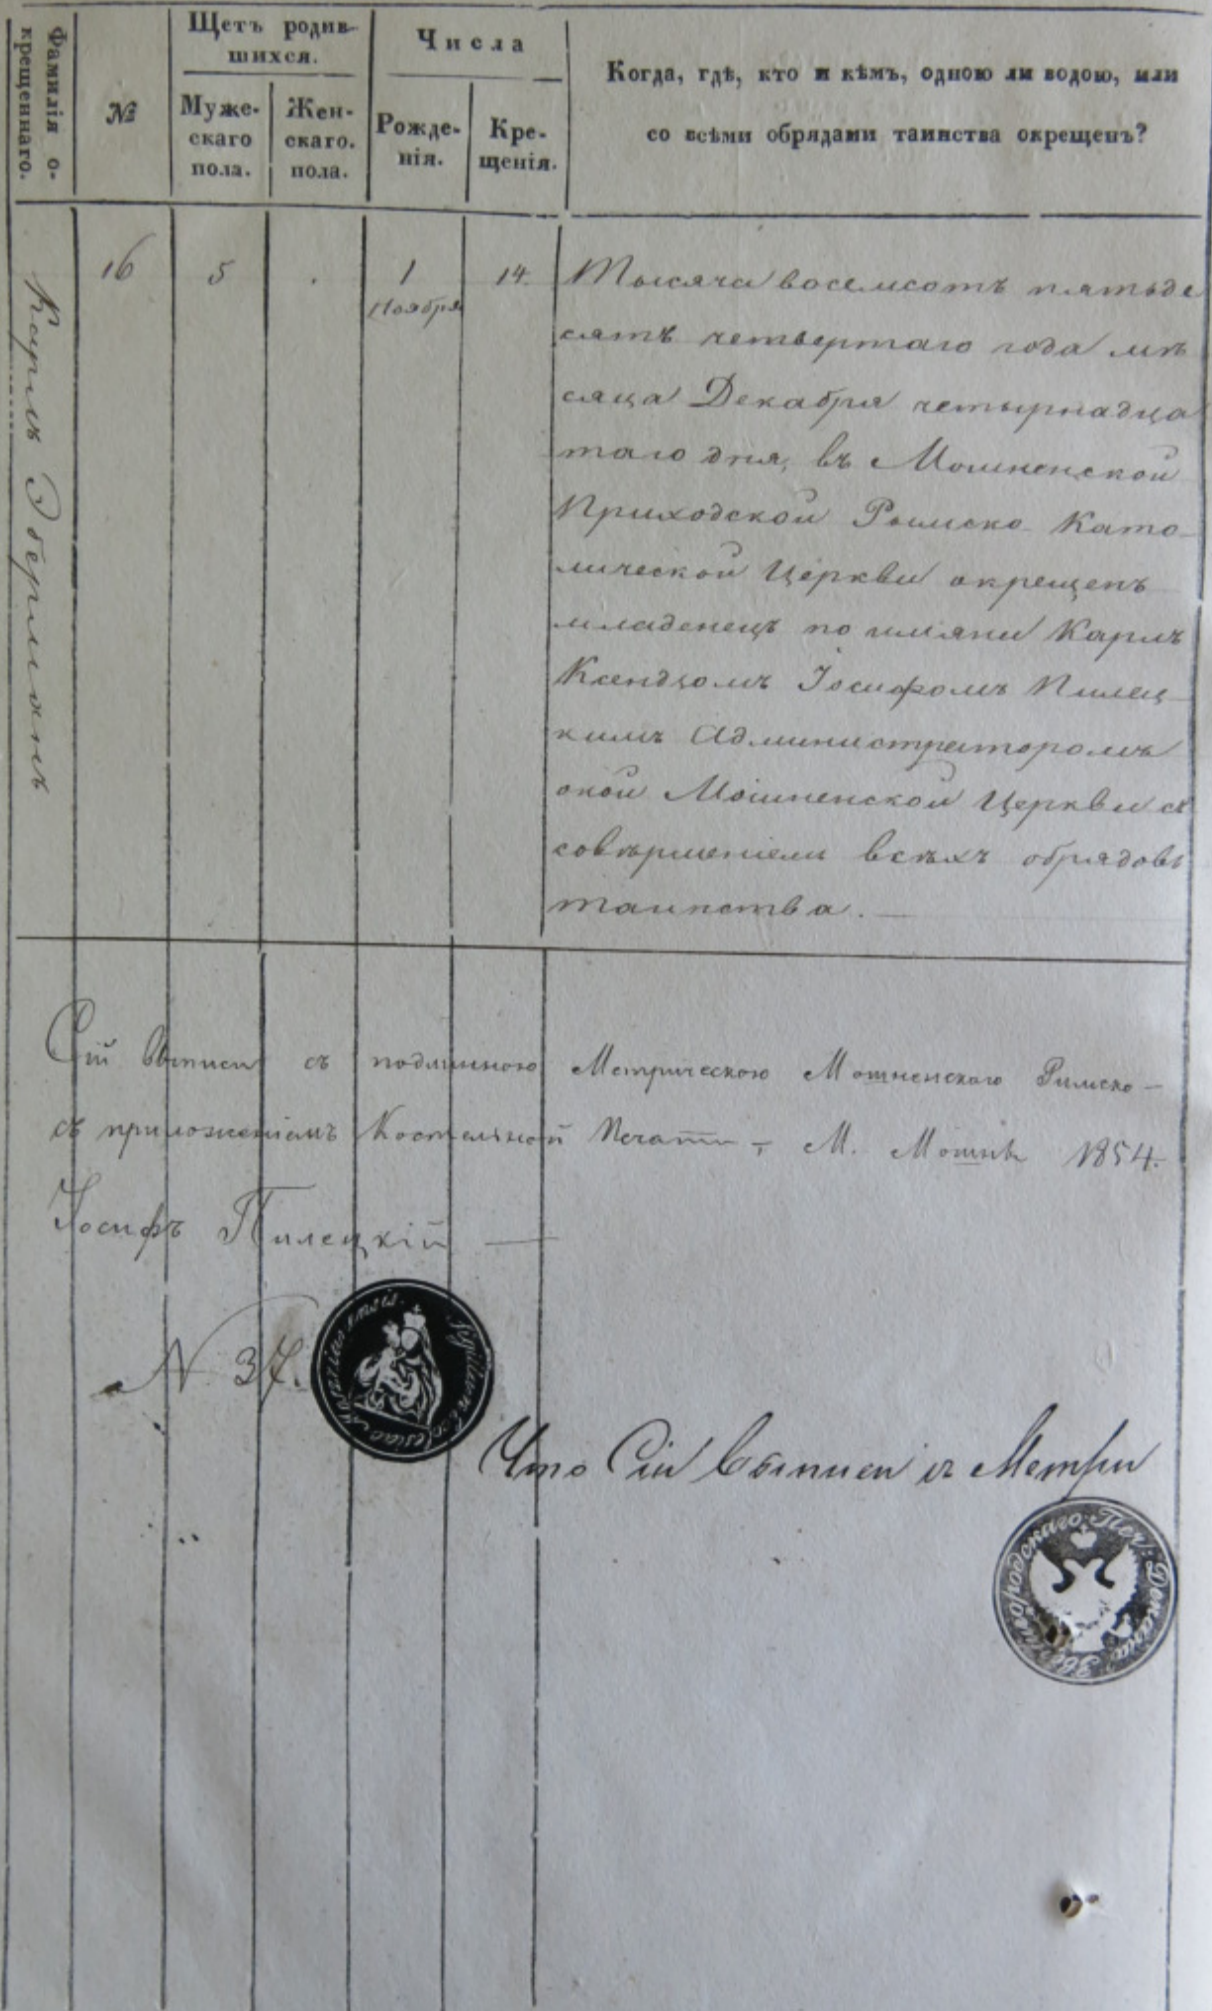 Фамилія о-
крещеннаго.
№
Щетъ родив-
шихся.
Муже-
скаго
пола.
Жен-
скаго.
пола.
Числа
Рожде-
нія.
Кре-
щенія.
Когда, гдѣ, кто и кѣмъ, одною ли водою, или
со всѣми обрядами таинства окрещенъ?
Карлъ Эберманъ
16
5
1
Ноября
14
Тысяча восемсотъ пятьде
сятъ четвертаго года мѣ
сяца Декабря четырнадца
таго дня, въ Мошненской
Приходской Римско Като-
лической Церкви окрещенъ
младенецъ по имяни Карлъ
Ксендзомъ Іосифомъ Пилец-
кимъ Администраторомъ
оной Мошненской Церкви съ
совѣршеніемъ всѣхъ обрядовъ
таинства.
Сій выписи съ подлинною Метрическою Мошненскаго Римско-
съ приложеніемъ Костельной Печати, М. Мошнѣ 1854.
Іосифъ Пилецкій
N 37.
Sigillum Ecclesiae
Что Сіи Выписи съ Метри
Печ: Декана